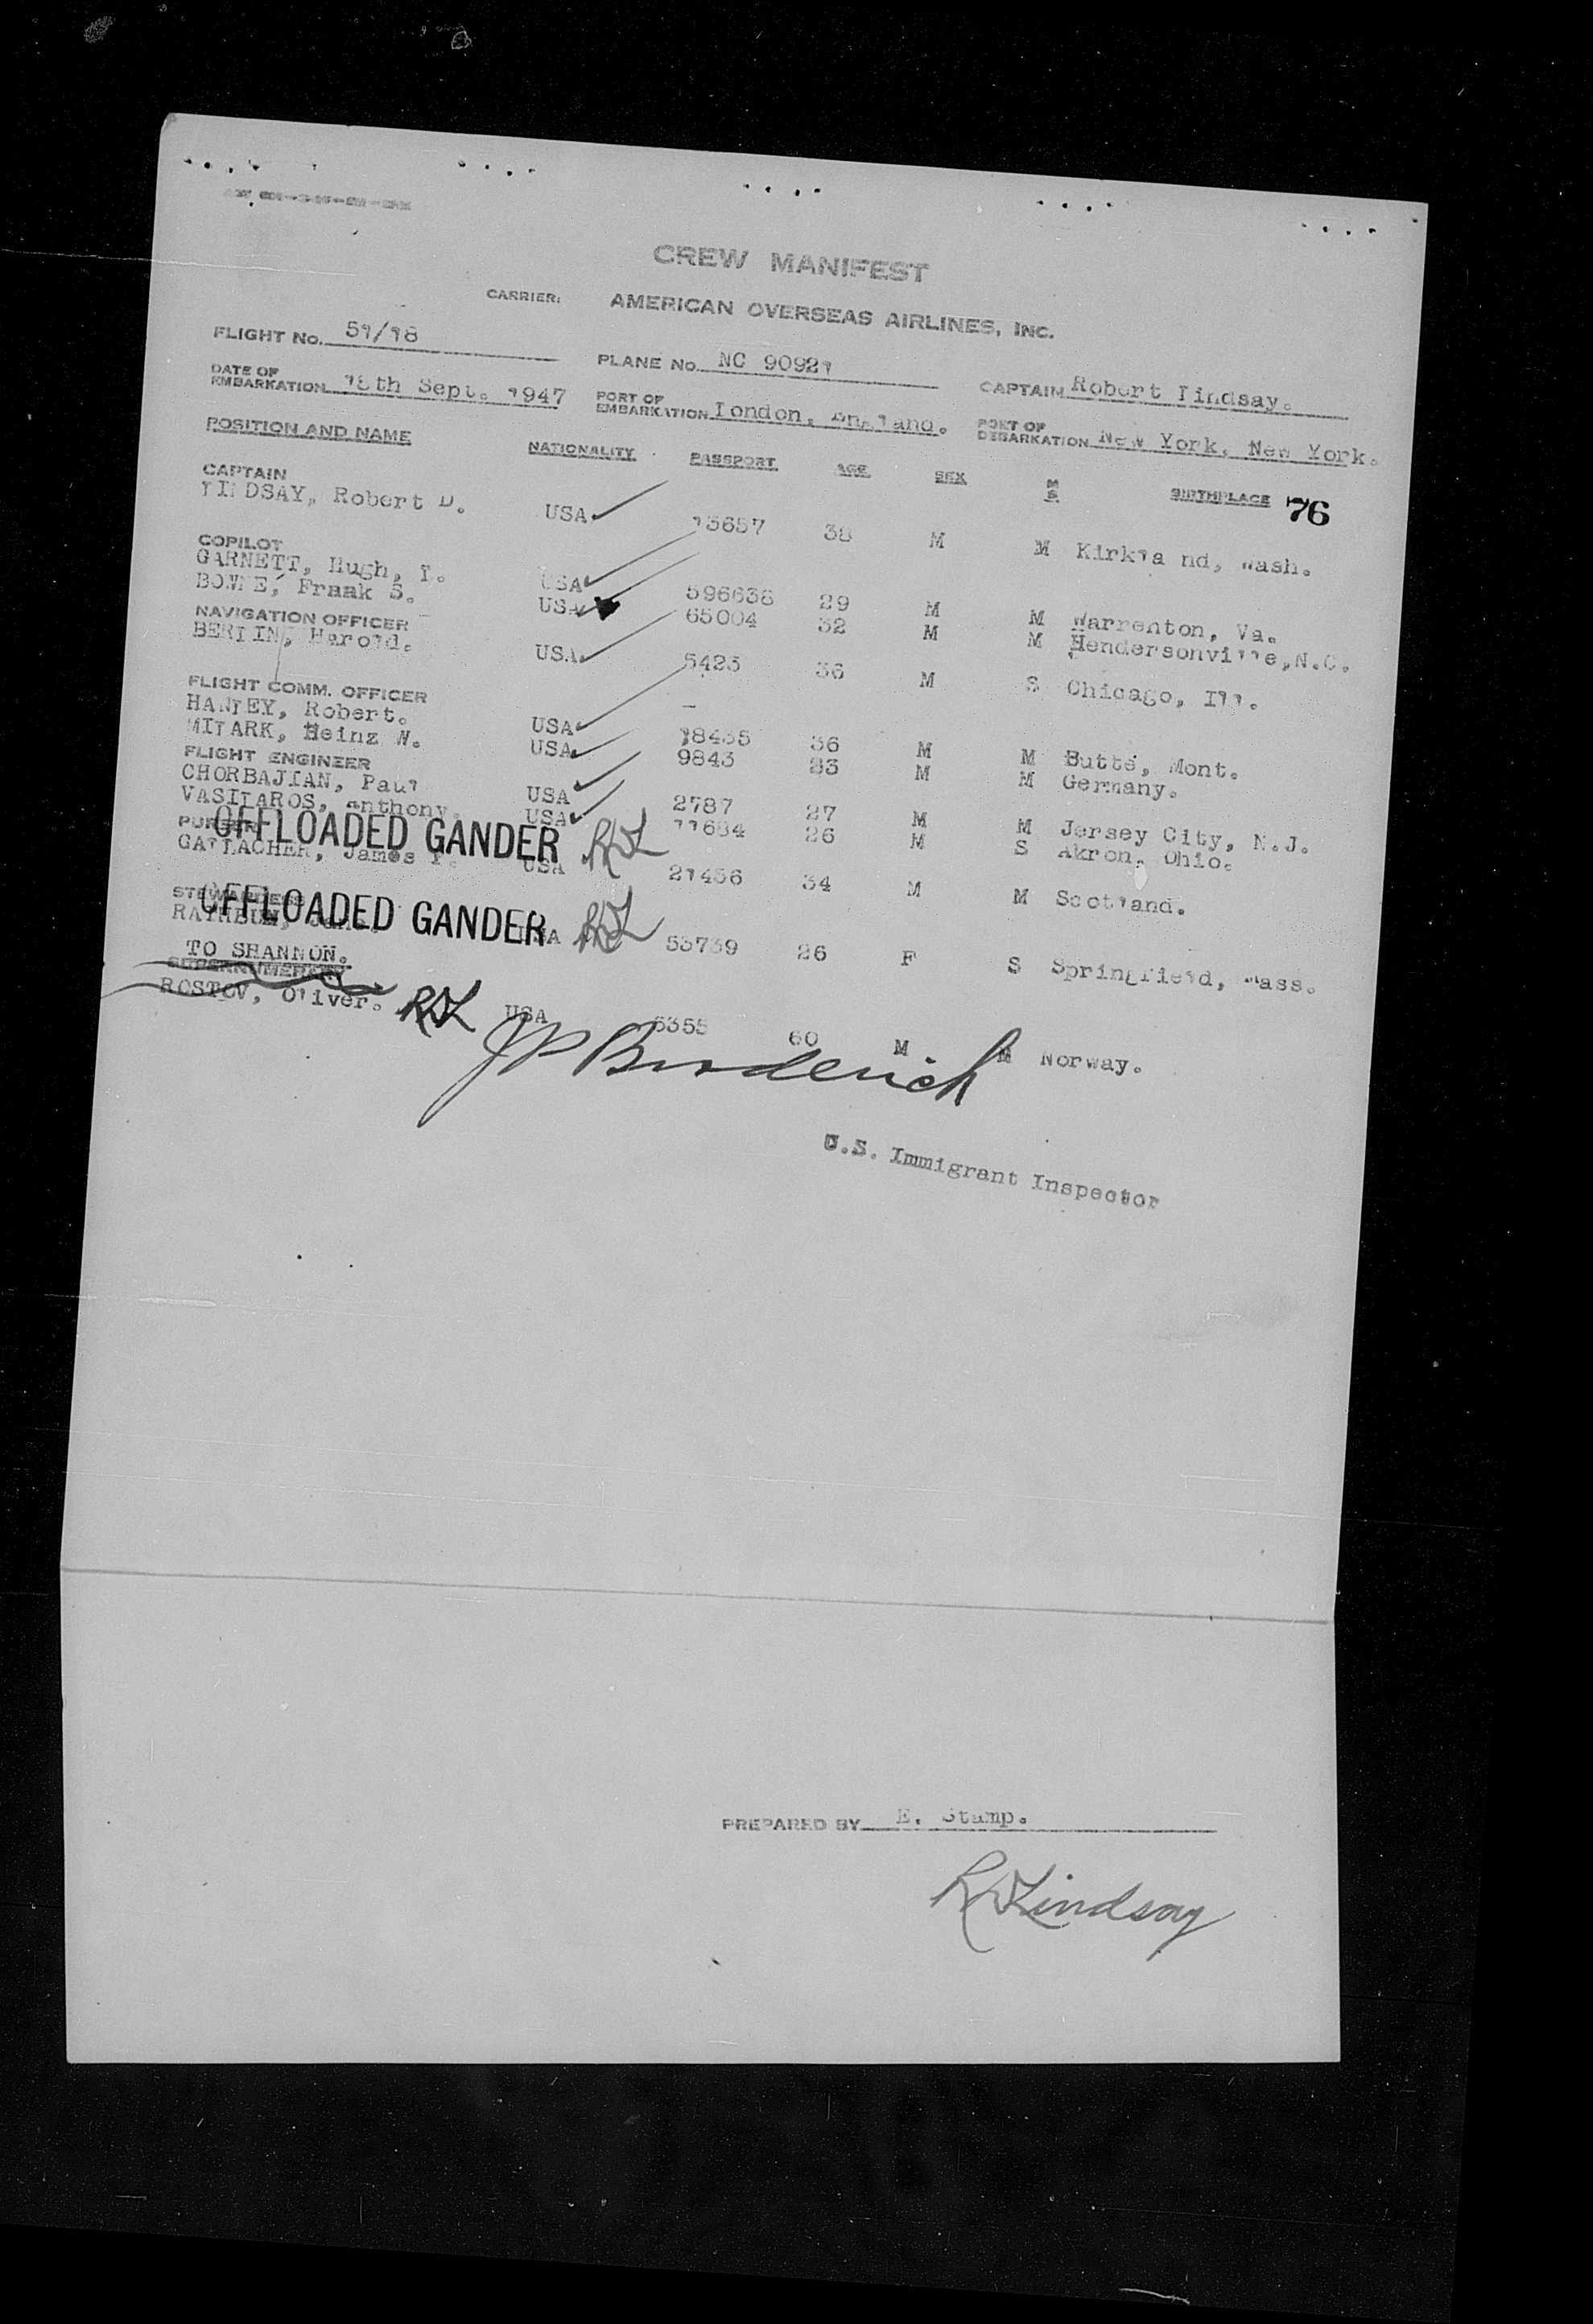 CREW MANIFEST
CARRIER: AMERICAN OVERSEAS AIRLINES, INC.
FLIGHT No. 51/18 PLANE No. NC 90921 CAPTAIN Robert Lindsay.
DATE OF EMBARKATION 18th Sept. 1947 PORT OF EMBARKATION London, England. PORT OF DEBARKATION New York, New York.
POSITION AND NAME NATIONALITY PASSPORT AGE SEX M S BIRTHPLACE 76
CAPTAIN
LINDSAY, Robert D. USA 13657 38 M M Kirkla nd, Wash.
COPILOT
GARNETT, Hugh, L. USA 596638 29 M M Warrenton, Va.
Frank S. USA 65004 32 M M Hendersonville, N.C.
NAVIGATION OFFICER
BERLIN, Harold. USA 5423 36 M S Chicago, Ill.
FLIGHT COMM. OFFICER
HANLEY, Robert. USA 18435 36 M M Butte, Mont.
MILARK, Heinz W. USA 9843 M M Germany.
FLIGHT ENGINEER
CHORBAJIAN, Paul. USA 2787 27 M M Jersey City, N.J.
VASILAROS, Anthony. USA 11684 26 M S Akron, Ohio.
PURSER
OFFLOADED GANDER RDL
GALLACHER, James USA 21456 34 M M Scotland.
STEWARDESS
OFFLOADED GANDER RDL
RATHBUN, USA 53739 26 F S Springfield, Mass.
TO SHANNON.
SUPERNUMERARY
ROSTOV, Oliver. RDL USA 5355 60 M M Norway.
JP Broderick
U.S. Immigrant Inspector
PREPARED BY E. Stamp.
RDLindsay